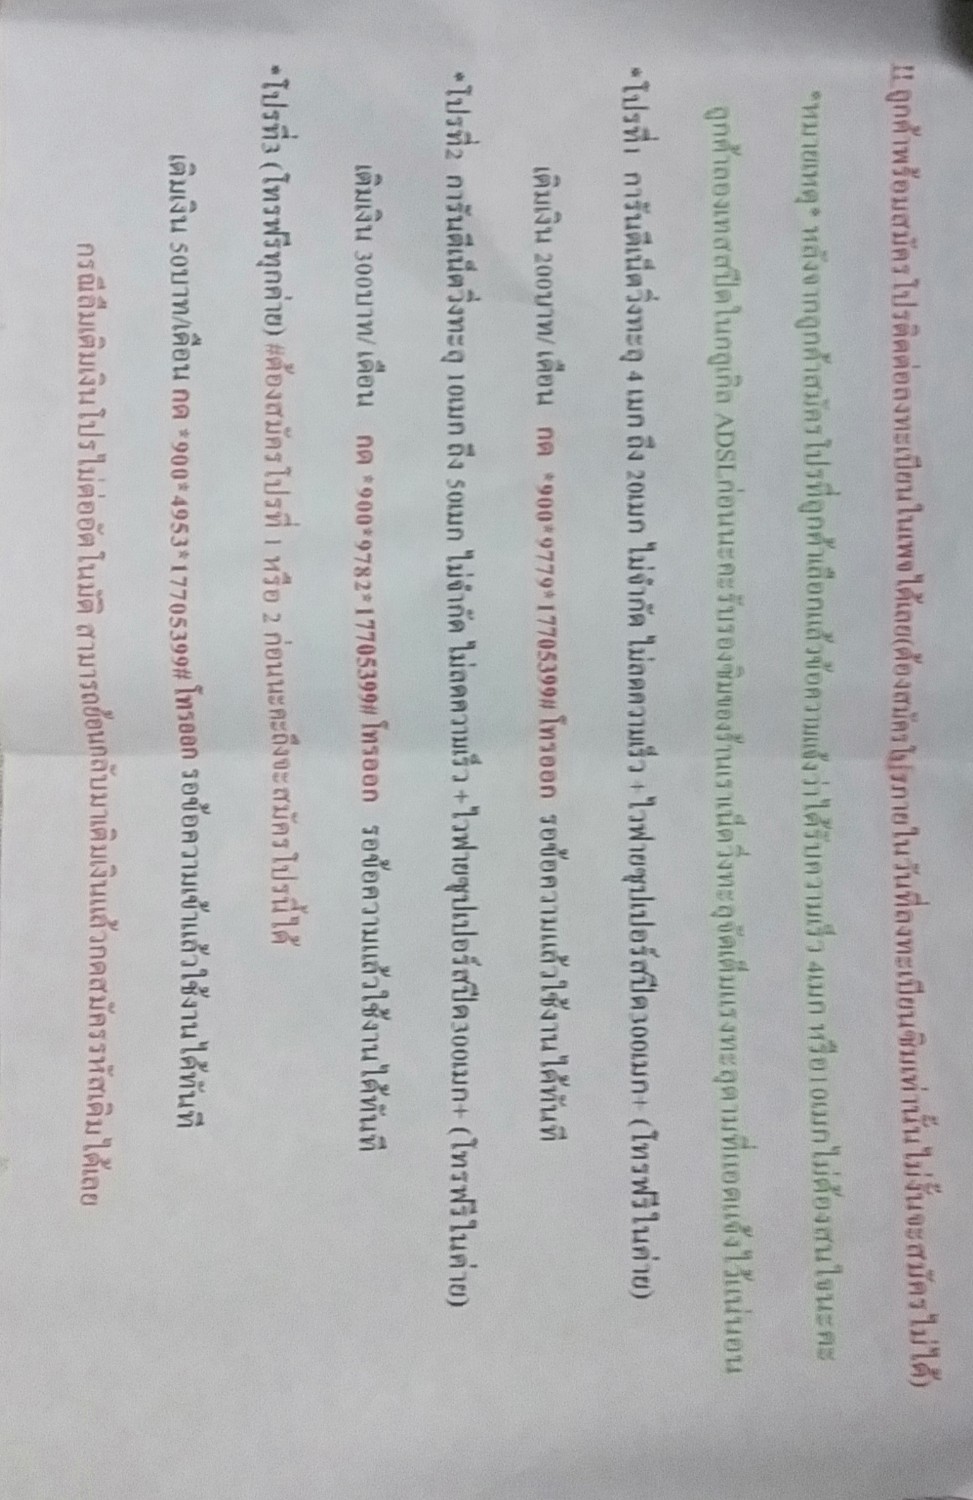 !! ลูกค้าพร้อมสมัครโปรติดต่อลงทะเบียนในเพจได้เลย(ต้องสมัครโปรภายในวันที่ลงทะเบียนซิมเท่านั้นไม่งั้นจะสมัครไม่ได้)
*หมายเหตุ* หลังจากลูกค้าสมัครโปรที่ลูกค้าเลือกแล้วข้อความแจ้งว่าได้รับความเร็ว 4เมก หรือ10เมกไม่ต้องสนใจนะคะ
ลูกค้าลองเทสสปีดในกูเกิล ADSLก่อนนะคะรับรองซิมของร้านเราเน็ตวิ่งทะลุจัดเต็มแรงทะลุตามที่แอดแจ้งไว้แน่นอน
*โปรที่1 การันตีเน็ตวิ่งทะลุ 4 เมก ถึง 20เมก ไม่จำกัด ไม่ลดความเร็ว + ไวฟายซุปเปอร์สปีด300เมก+ (โทรฟรีในค่าย)
เติมเงิน 200บาท/ เดือน กด *900*9779*17705399# โทรออก รอข้อความแล้วใช้งานได้ทันที
*โปรที่2 การันตีเน็ตวิ่งทะลุ 10เมก ถึง 50เมก ไม่จำกัด ไม่ลดความเร็ว + ไวฟายซุปเปอร์สปีด300เมก+ (โทรฟรีในค่าย)
เติมเงิน 300บาท/ เดือน กด *900*9782*17705399# โทรออก รอข้อความแล้วใช้งานได้ทันที
*โปรที่3 (โทรฟรีทุกค่าย) #ต้องสมัครโปรที่ 1 หรือ 2 ก่อนนะคะถึงจะสมัครโปรนี้ได้
เติมเงิน 50บาท/เดือน กด *900*4953*17705399# โทรออก รอข้อความเข้าแล้วใช้งานได้ทันที
กรณีลืมเติมเงินโปรไม่ต่ออัตโนมัติ สามารถย้อนกลับมาเติมเงินแล้วกดสมัครรหัสเดิมได้เลย